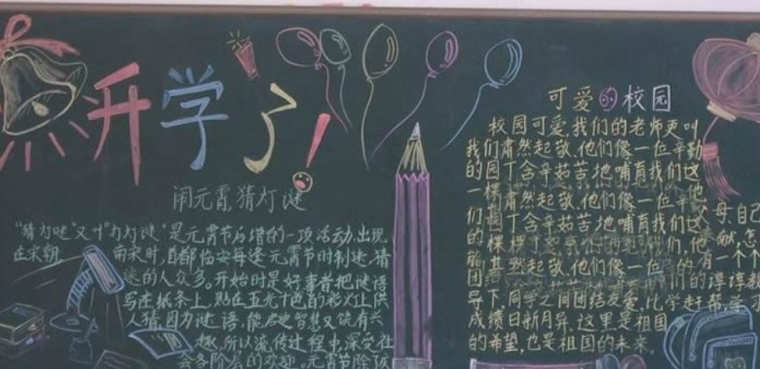 开学了!
闹元宵,猜灯谜
"猜灯谜"又叫"打灯谜"是元宵节后增的一项活动,出现
在宋朝。南宋时,首都临安每逢元宵节时制迷,猜
谜的人众多。开始时是好事者把谜语
写在纸条上,贴在五光十色的彩灯上供
人猜。因为谜语能启迪智慧又饶有兴
趣,所以流传过程中深受社
会各阶层的欢迎。元宵节除
可爱的校园
校园可爱,我们的老师更叫
我们肃然起敬,他们像一位辛勤
的园丁含辛茹苦地哺育我们这
一棵
们园丁含辛茹苦地哺育我们这
的棵棵
然起敬,他们像一位
团
导下,同学之间团结友爱,比学赶帮,学习
成绩日新月异。这里是祖国
的希望,也是祖国的未来。
父母,自己